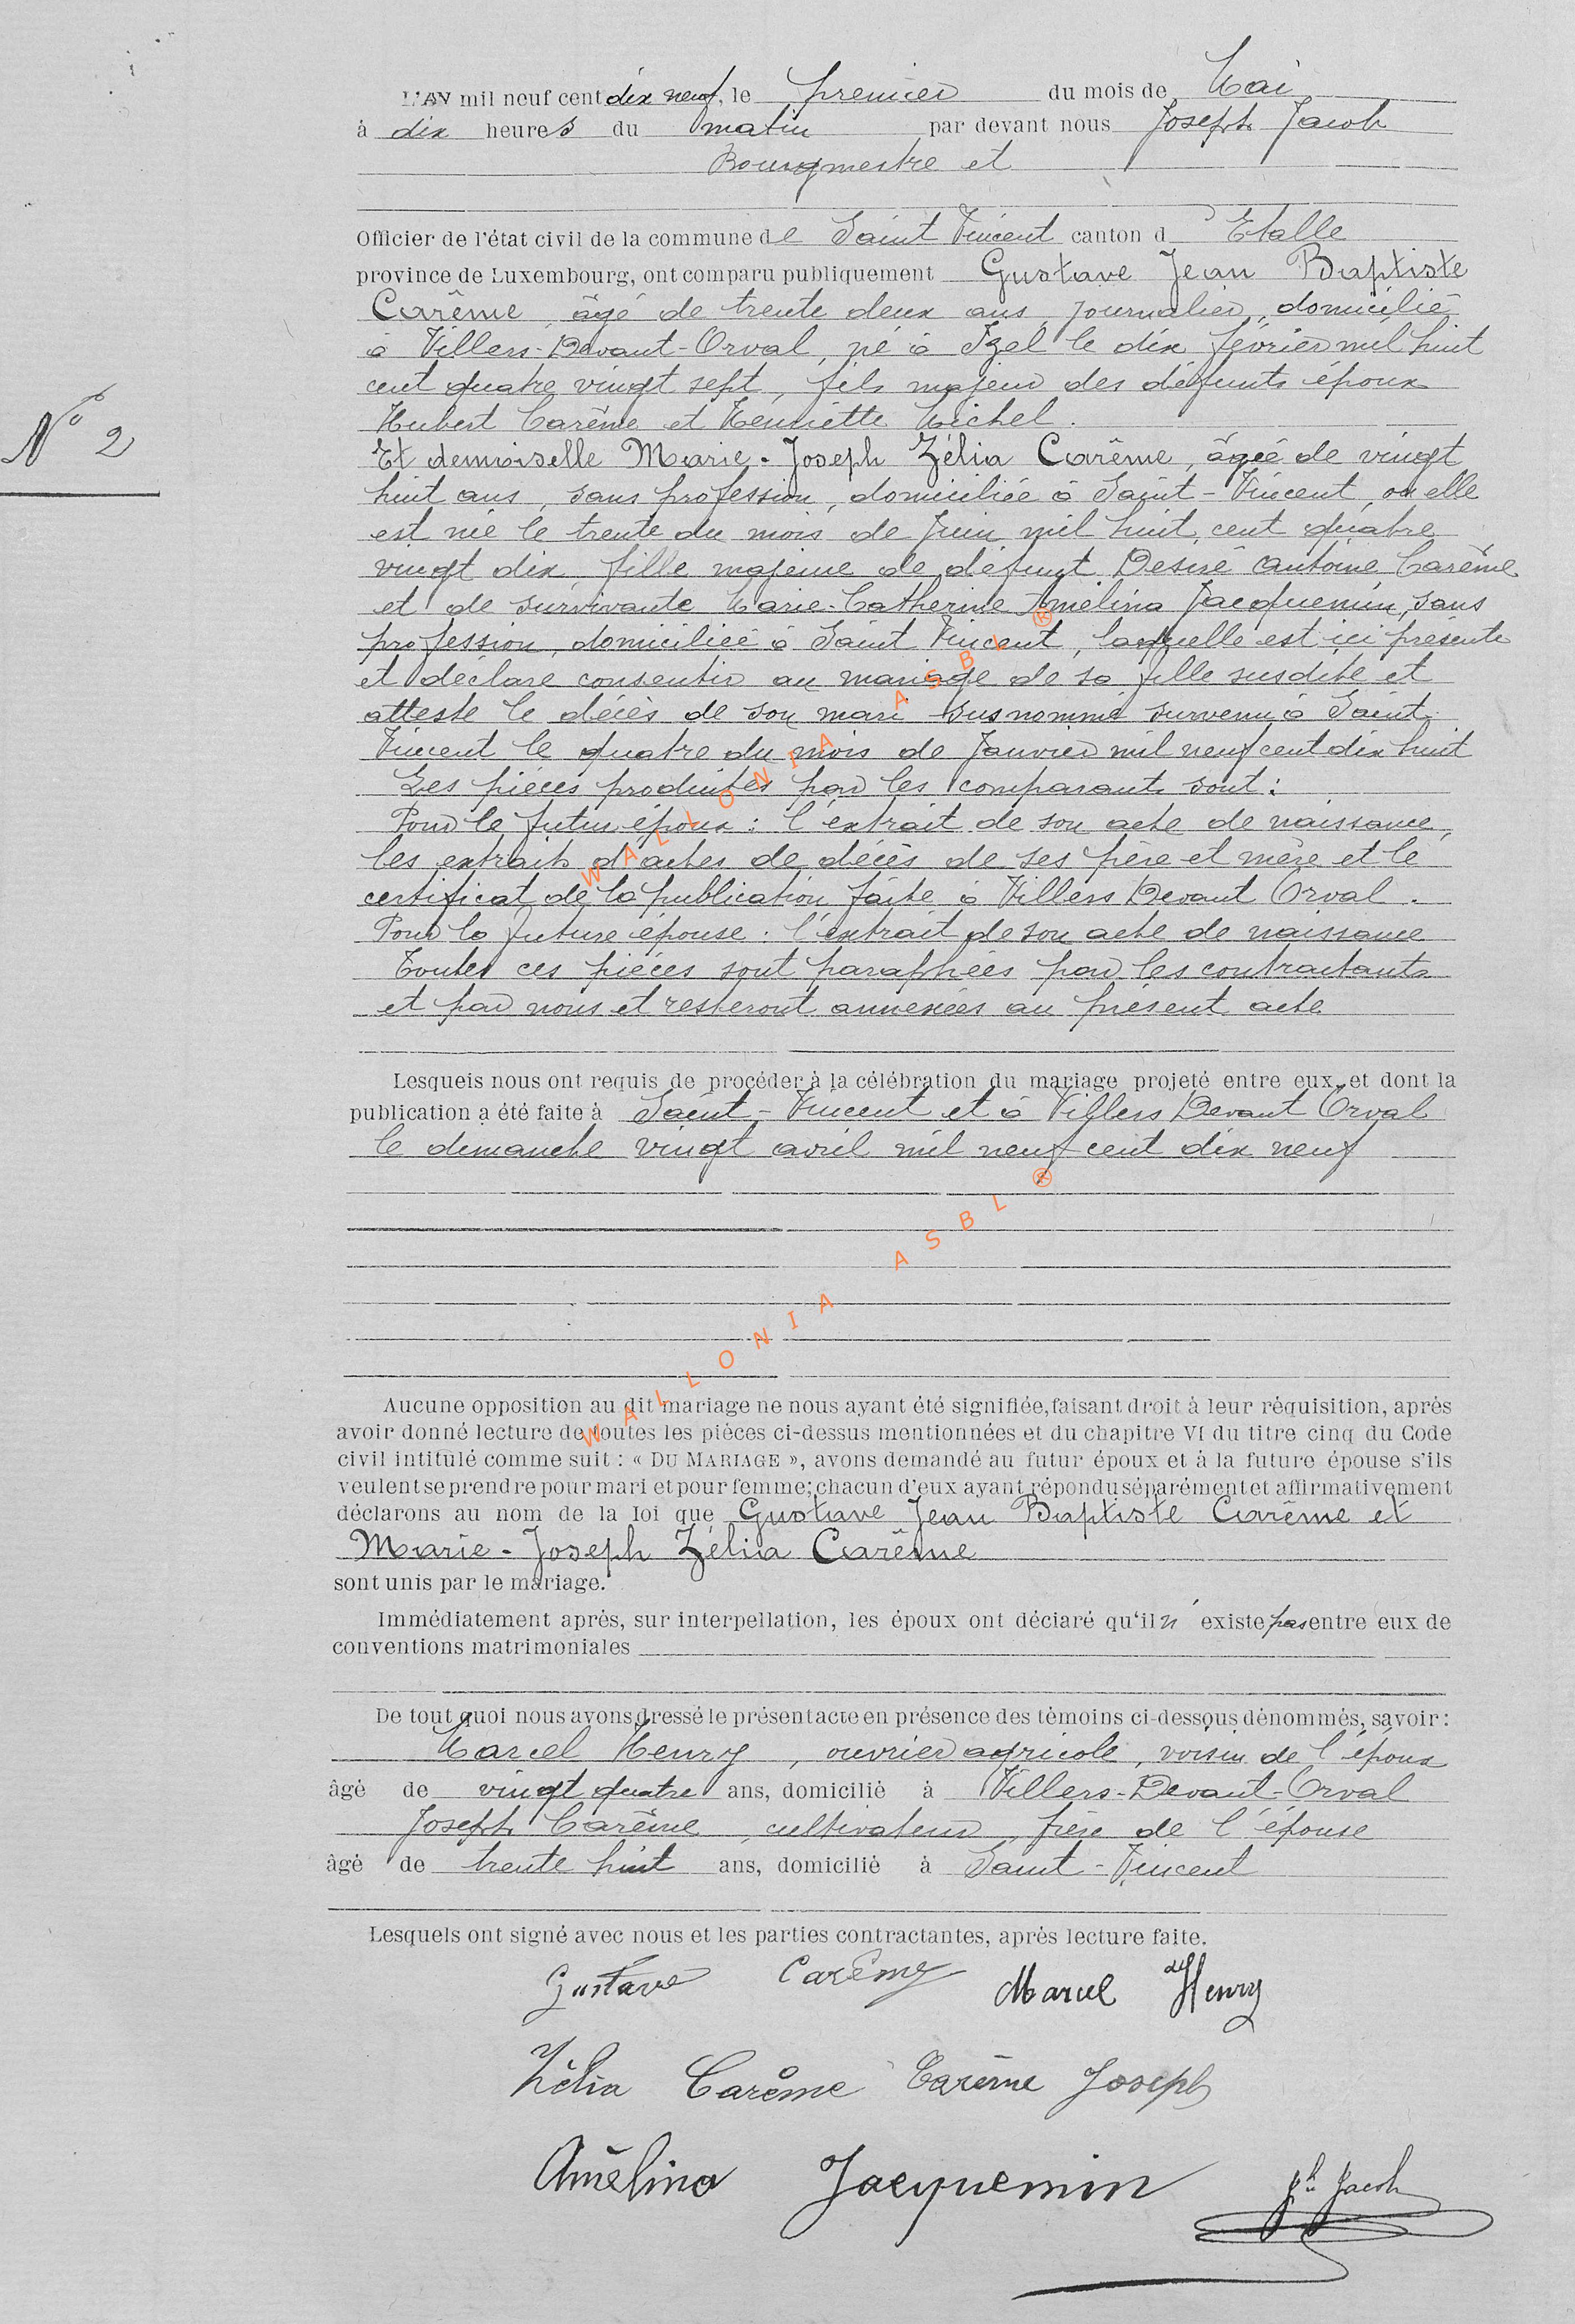 L'AN mil neuf cent dix neuf, le premier du mois de Mai
à dix heures du matin par devant nous Joseph Jacob
Bourgmestre et
Officier de l'état civil de la commune de Saint Vincent canton d Etalle
province de Luxembourg, ont comparu publiquement Gustave Jean Baptiste
Carême, âgé de trente deux ans, journalier, domicilié
à Villers-Devant-Orval, né à Izel le dix février mil huit
cent quatre vingt sept, fils majeur des défunts époux
Hubert Carême et Henriette Michel.
N° 2
Et demoiselle Marie-Joseph Zélia Carême, âgée de vingt
huit ans, sans profession, domiciliée à Saint-Vincent, où elle
est née le trente du mois de Juin mil huit cent quatre
vingt dix, fille majeure de défunt Desiré Antoine Carême
et de survivante Marie-Catherine Amélina Jacquemin, sans
profession, domiciliée à Saint Vincent, laquelle est ici présente
et déclare consentir au mariage de sa fille susdite et
atteste le décès de son mari susnommé survenu à Saint
Vincent le quatre du mois de Janvier mil neuf cent dix huit
Les pièces produites par les comparants sont :
Pour le futur époux : l'extrait de son acte de naissance,
les extraits d'actes de décès de ses père et mère et le
certificat de la publication faite à Villers Devant Orval.
Pour la future épouse : l'extrait de son acte de naissance
Toutes ces pièces sont paraphées par les contractants
et par nous et resteront annexées au présent acte
WALLONIA ASBL ®
Lesquels nous ont requis de procéder à la célébration du mariage projeté entre eux, et dont la
publication a été faite à Saint-Vincent et à Villers Devant Orval
le dimanche vingt avril mil neuf cent dix neuf
WALLONIA ASBL ®
Aucune opposition au dit mariage ne nous ayant été signifiée, faisant droit à leur réquisition, après
avoir donné lecture de toutes les pièces ci-dessus mentionnées et du chapitre VI du titre cinq du Code
civil intitulé comme suit : « DU MARIAGE », avons demandé au futur époux et à la future épouse s'ils
veulent se prendre pour mari et pour femme; chacun d'eux ayant répondu séparément et affirmativement
déclarons au nom de la loi que Gustave Jean Baptiste Carême et
Marie-Joseph Zélia Carême
sont unis par le mariage.
Immédiatement après, sur interpellation, les époux ont déclaré qu'il n'existe pas entre eux de
conventions matrimoniales
De tout quoi nous avons dressé le présent acte en présence des témoins ci-dessous dénommés, savoir :
Marcel Henry, ouvrier agricole, voisin de l'époux
âgé de vingt quatre ans, domicilié à Villers-Devant-Orval
Joseph Carême, cultivateur, frère de l'épouse
âgé de trente huit ans, domicilié à Saint-Vincent
Lesquels ont signé avec nous et les parties contractantes, après lecture faite.
Gustave Carême Marcel Henry
Zélia Carême Carême Joseph
Amélina Jacquemin Jh Jacob